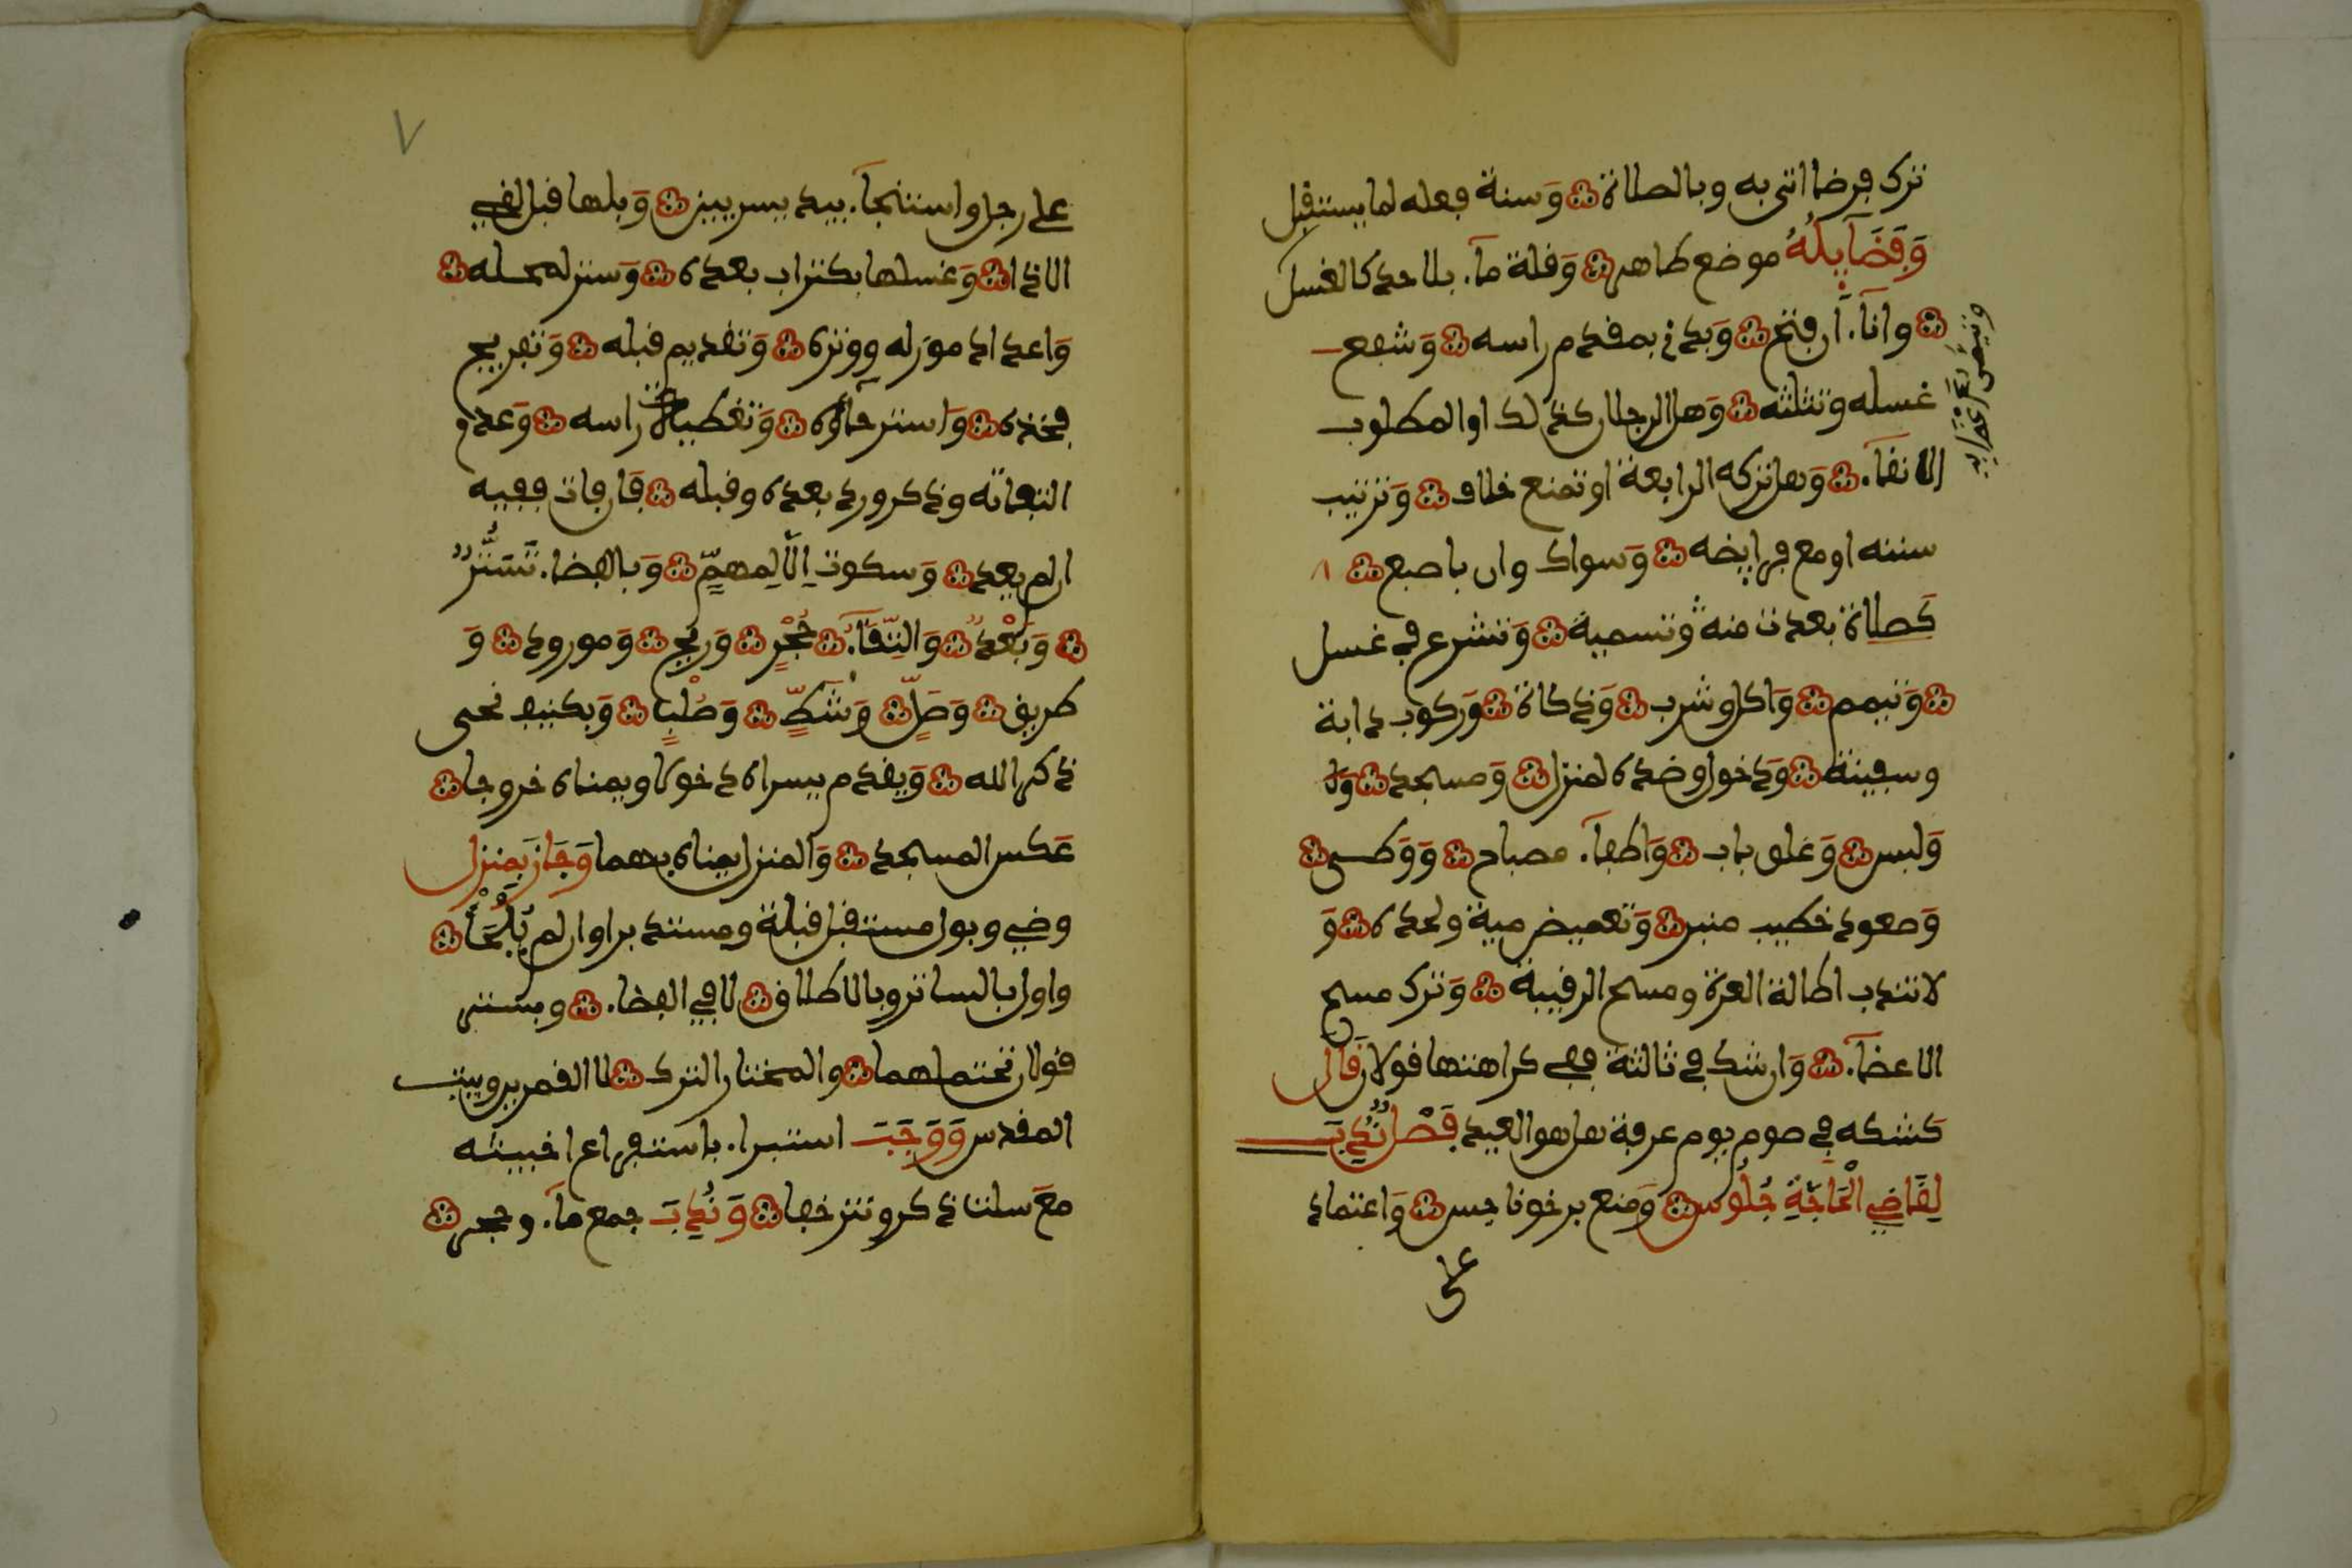 ترك فرضا اتى به وبالصلاة وَسنة فعله لما يستقبل
وَفَضَآيِلُهُ موضع طاهر وَقلة مآء بلا حد كالغسل
وتيمن اعضآء
وانآء ان فتح وَبدء بمقدم راسه وَشفع
غسله وتثليثه وَهل الرجلان كذلك او المطلوب
الانقآء وَهل تركه الرابعة او تمنع خلاف وَترتيب
سننه او مع فرايضه وَسواك وان باصبع
كَصلاة بعدت منه وتسمية وَتشرع في غسل
وَتيمم وَاكل وشرب وَذكاة وَركوب دابة
وسفينة وَدخول وضده لمنزل وَمسجد
وَلبس وَغلق باب وَاطفآء مصباح وَوَطىء
وَصعود خطيب منبر وَتغميض ميت ولحده وَ
لا تندب اطالة الغرة ومسح الرقبة وَترك مسح
الاعضآء وَان شك في ثالثة ففي كراهتها قولان قَالَ
كَشكه في صوم يوم عرفة هل هو العيد فَصْل نُدِبَ
لِقَاضِي الْحَاجَةِ جُلُوس وَمنع برخو نجس وَاعتماد
على
٧
على رجل واستنجآء بيد يسريين وَبلها قبل لقي
الاذا وَغسلها بكتراب بعده وَستر لمحله
وَاعداد مزيله ووتره وَتقديم قبله وَتفريج
فخذه وَاسترخآؤه وَتغطية راسه وَعدم
التفاته وذكر ورد بعده وقبله فَان فات ففيه
ان لم يعد وَسكوت اِلّا لِمهمّ وَبالفضاء تَسَتُّرٌ
وَبُعْدٌ وَاتِّقَآءُ جُحْرٍ وَريح وَمورد وَ
طريق وَظِلٍّ وَشَطٍّ وَصُلْبٍ وَبكنيف نحى
ذكر الله وَيقدم يسراه دخولا ويمناه خروجا
عَكس المسجد وَالمنزل يمناه بهما وَجَازَ بمنزل
وضيء وبول مستقبل قبلة ومستدبرا وان لم يُلْجَأْ
واول بالساتر وبالاطلاق لا في الفضاء وبستر
قولان تحتملهما والمختار الترك لا القمرين وبيت
المقدس وَوَجَبَ استبراء باستفراغ اخبثيه
معَ سلت ذكر ونتر خفا وَنُدِبَ جمع مآء وحجر